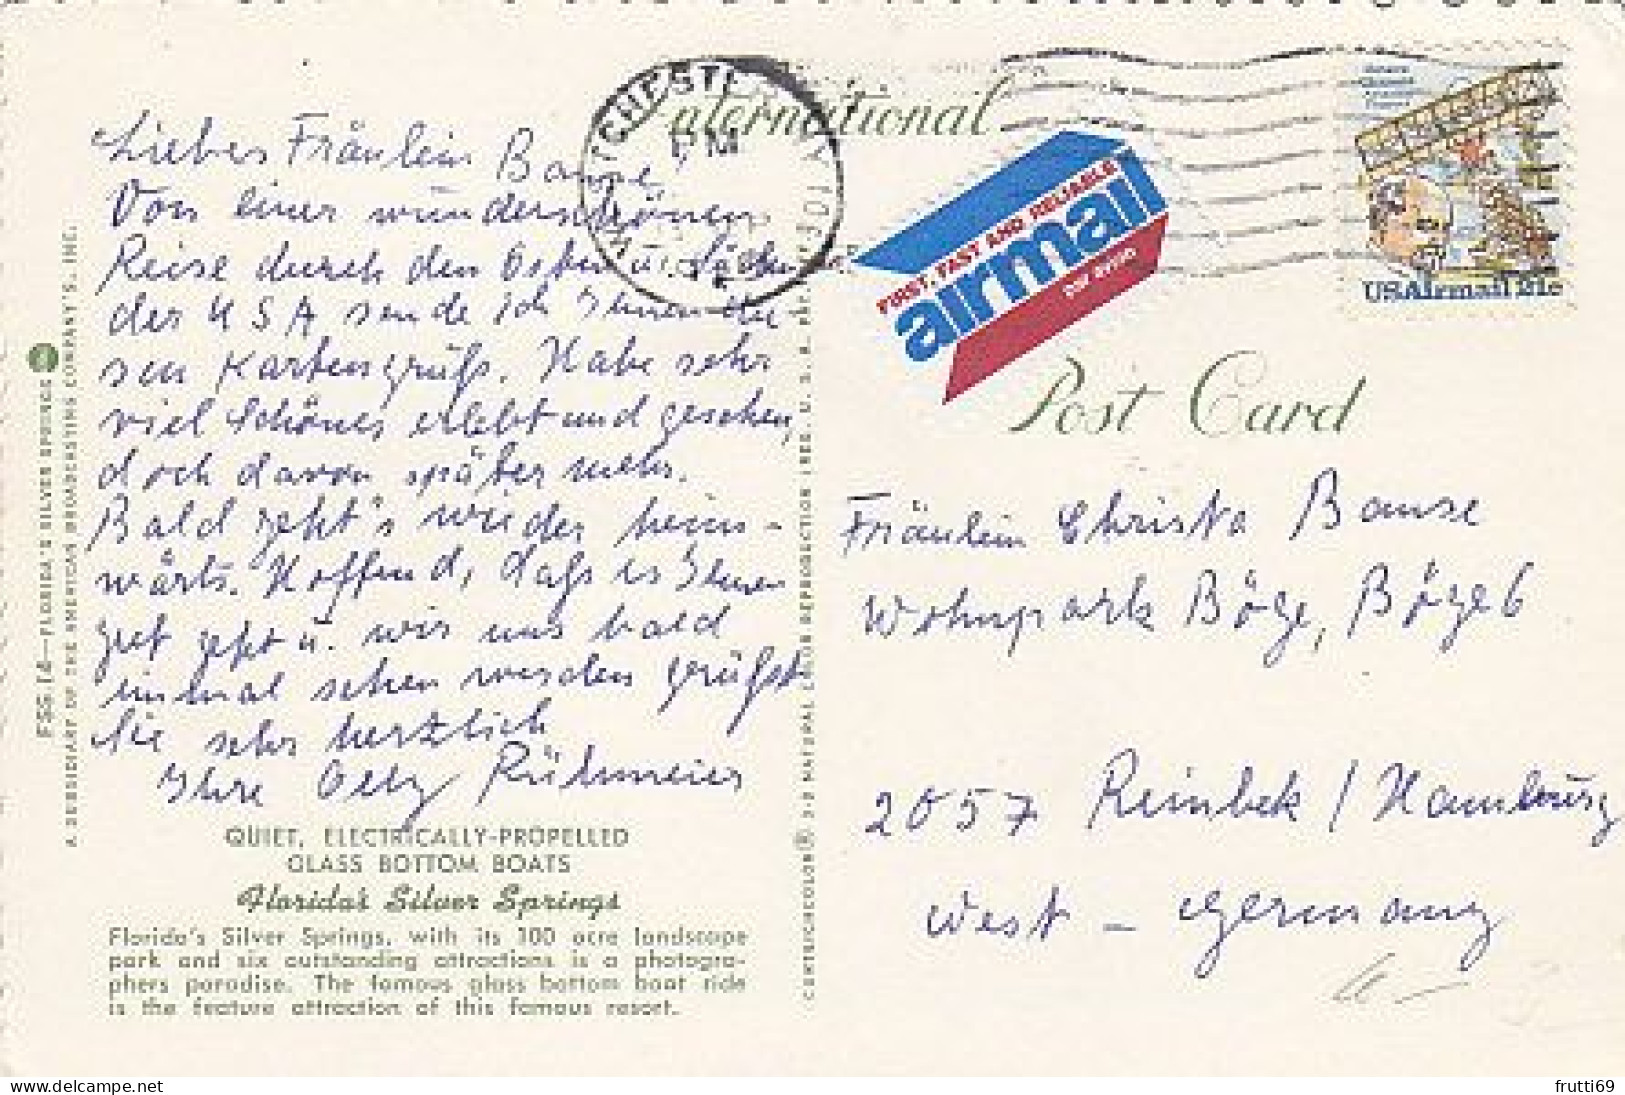 International
Post Card
FIRST, FAST AND RELIABLE
airmail
PAR AVION
USAirmail 21c
PM
Liebes Fräulein Banse!
Von einer wunderschönen
Reise durch den Osten u. Süden
der USA sende ich Ihnen die
sen Kartengruß. Habe sehr
viel Schönes erlebt und gesehen,
doch davon später mehr.
Bald geht's wieder heim-
wärts. Hoffend, daß es Ihnen
gut geht u. wir uns bald
einmal sehen werden grüßt
Sie sehr herzlich
Ihre Rühmeier
Fräulein Christa Banse
Wohnpark Böge, Böge 6
2057 Reinbek / Hamburg
West - Germany
QUIET, ELECTRICALLY-PROPELLED
GLASS BOTTOM BOATS
Florida's Silver Springs
Florida's Silver Springs, with its 100 acre landscape
park and six outstanding attractions is a photogra-
phers paradise. The famous glass bottom boat ride
is the feature attraction of this famous resort.
FSS 14—FLORIDA'S SILVER SPRINGS
A SUBSIDIARY OF THE AMERICAN BROADCASTING COMPANY'S, INC.
frutti69